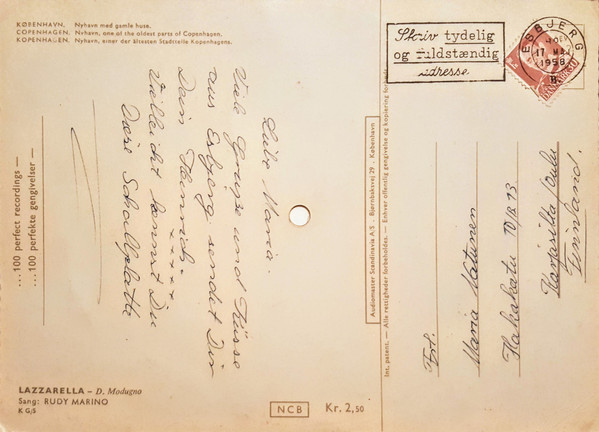 KØBENHAVN, Nyhavn med gamle huse.
COPENHAGEN. Nyhavn, one of the oldest parts of Copenhagen.
KOPENHAGEN. Nyhavn, einer der ältesten Stadtteile Kopenhagens.
Skriv tydelig
og fuldstændig
adresse
ESBJERG
17
1958
DANMARK
Liebe Maria.
Viele Grüsse und Küsse
aus Esbjerg sendet Dir
Dein Henrik.
xxxxx
Vielleicht kennst Du
diese Schallplatte.
... 100 perfect recordings —
... 100 perfekte gengivelser —
Audiomaster Scandinavia A/S · Bjørnbaksvej 29 · København
Int. patent. — Alle rettigheder forbeholdes. — Enhver offenlig gengivelse og kopiering forbudt
Frl.
Maria
13
Finnland.
LAZZARELLA – D. Modugno
Sang: RUDY MARINO
K G/S
NCB
Kr. 2,50